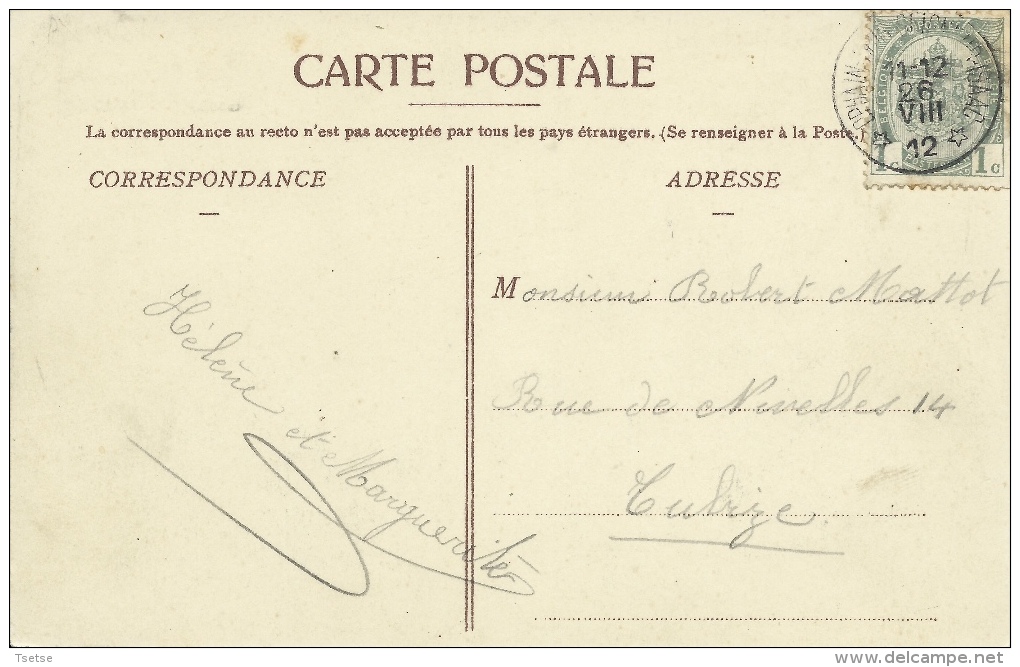 CARTE POSTALE
La correspondance au recto n'est pas acceptée par tous les pays étrangers. (Se renseigner à la Poste.)
CORRESPONDANCE
ADRESSE
11-12
26
VIII
12
BELGIQUE
1c 1c
Monsieur Robert Mattot
Rue de Nivelles 14
Tubize
Hélène et Marguerite
Tsetse
delcampe.net